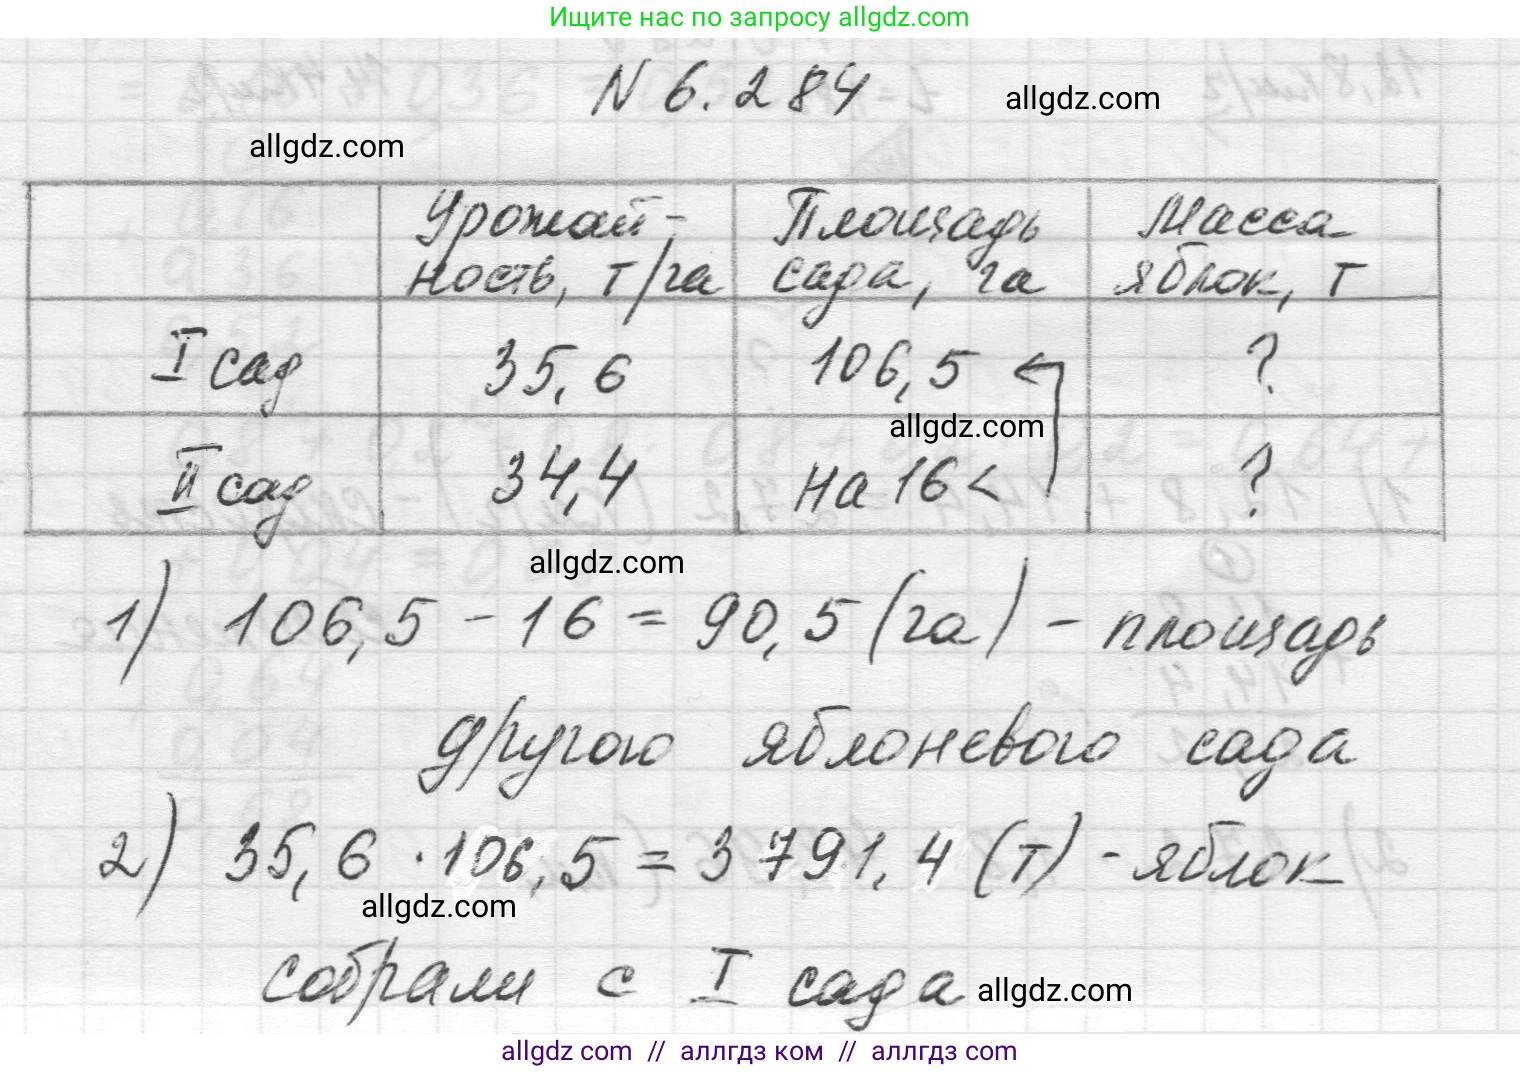 Ищите нас по запросу allgdz.com
N 6.284
allgdz.com
allgdz.com
Урожай- Площадь Масса
ность, т/га сада, га яблок, т
I сад 35,6 106,5 ?
allgdz.com
II сад 34,4 на 16 < ?
allgdz.com
1) 106,5 - 16 = 90,5 (га) - площадь
другого яблоневого сада
2) 35,6 · 106,5 = 3 791,4 (т) - яблок
allgdz.com
собрали с I сада
allgdz.com
allgdz com // аллгдз ком // аллгдз com